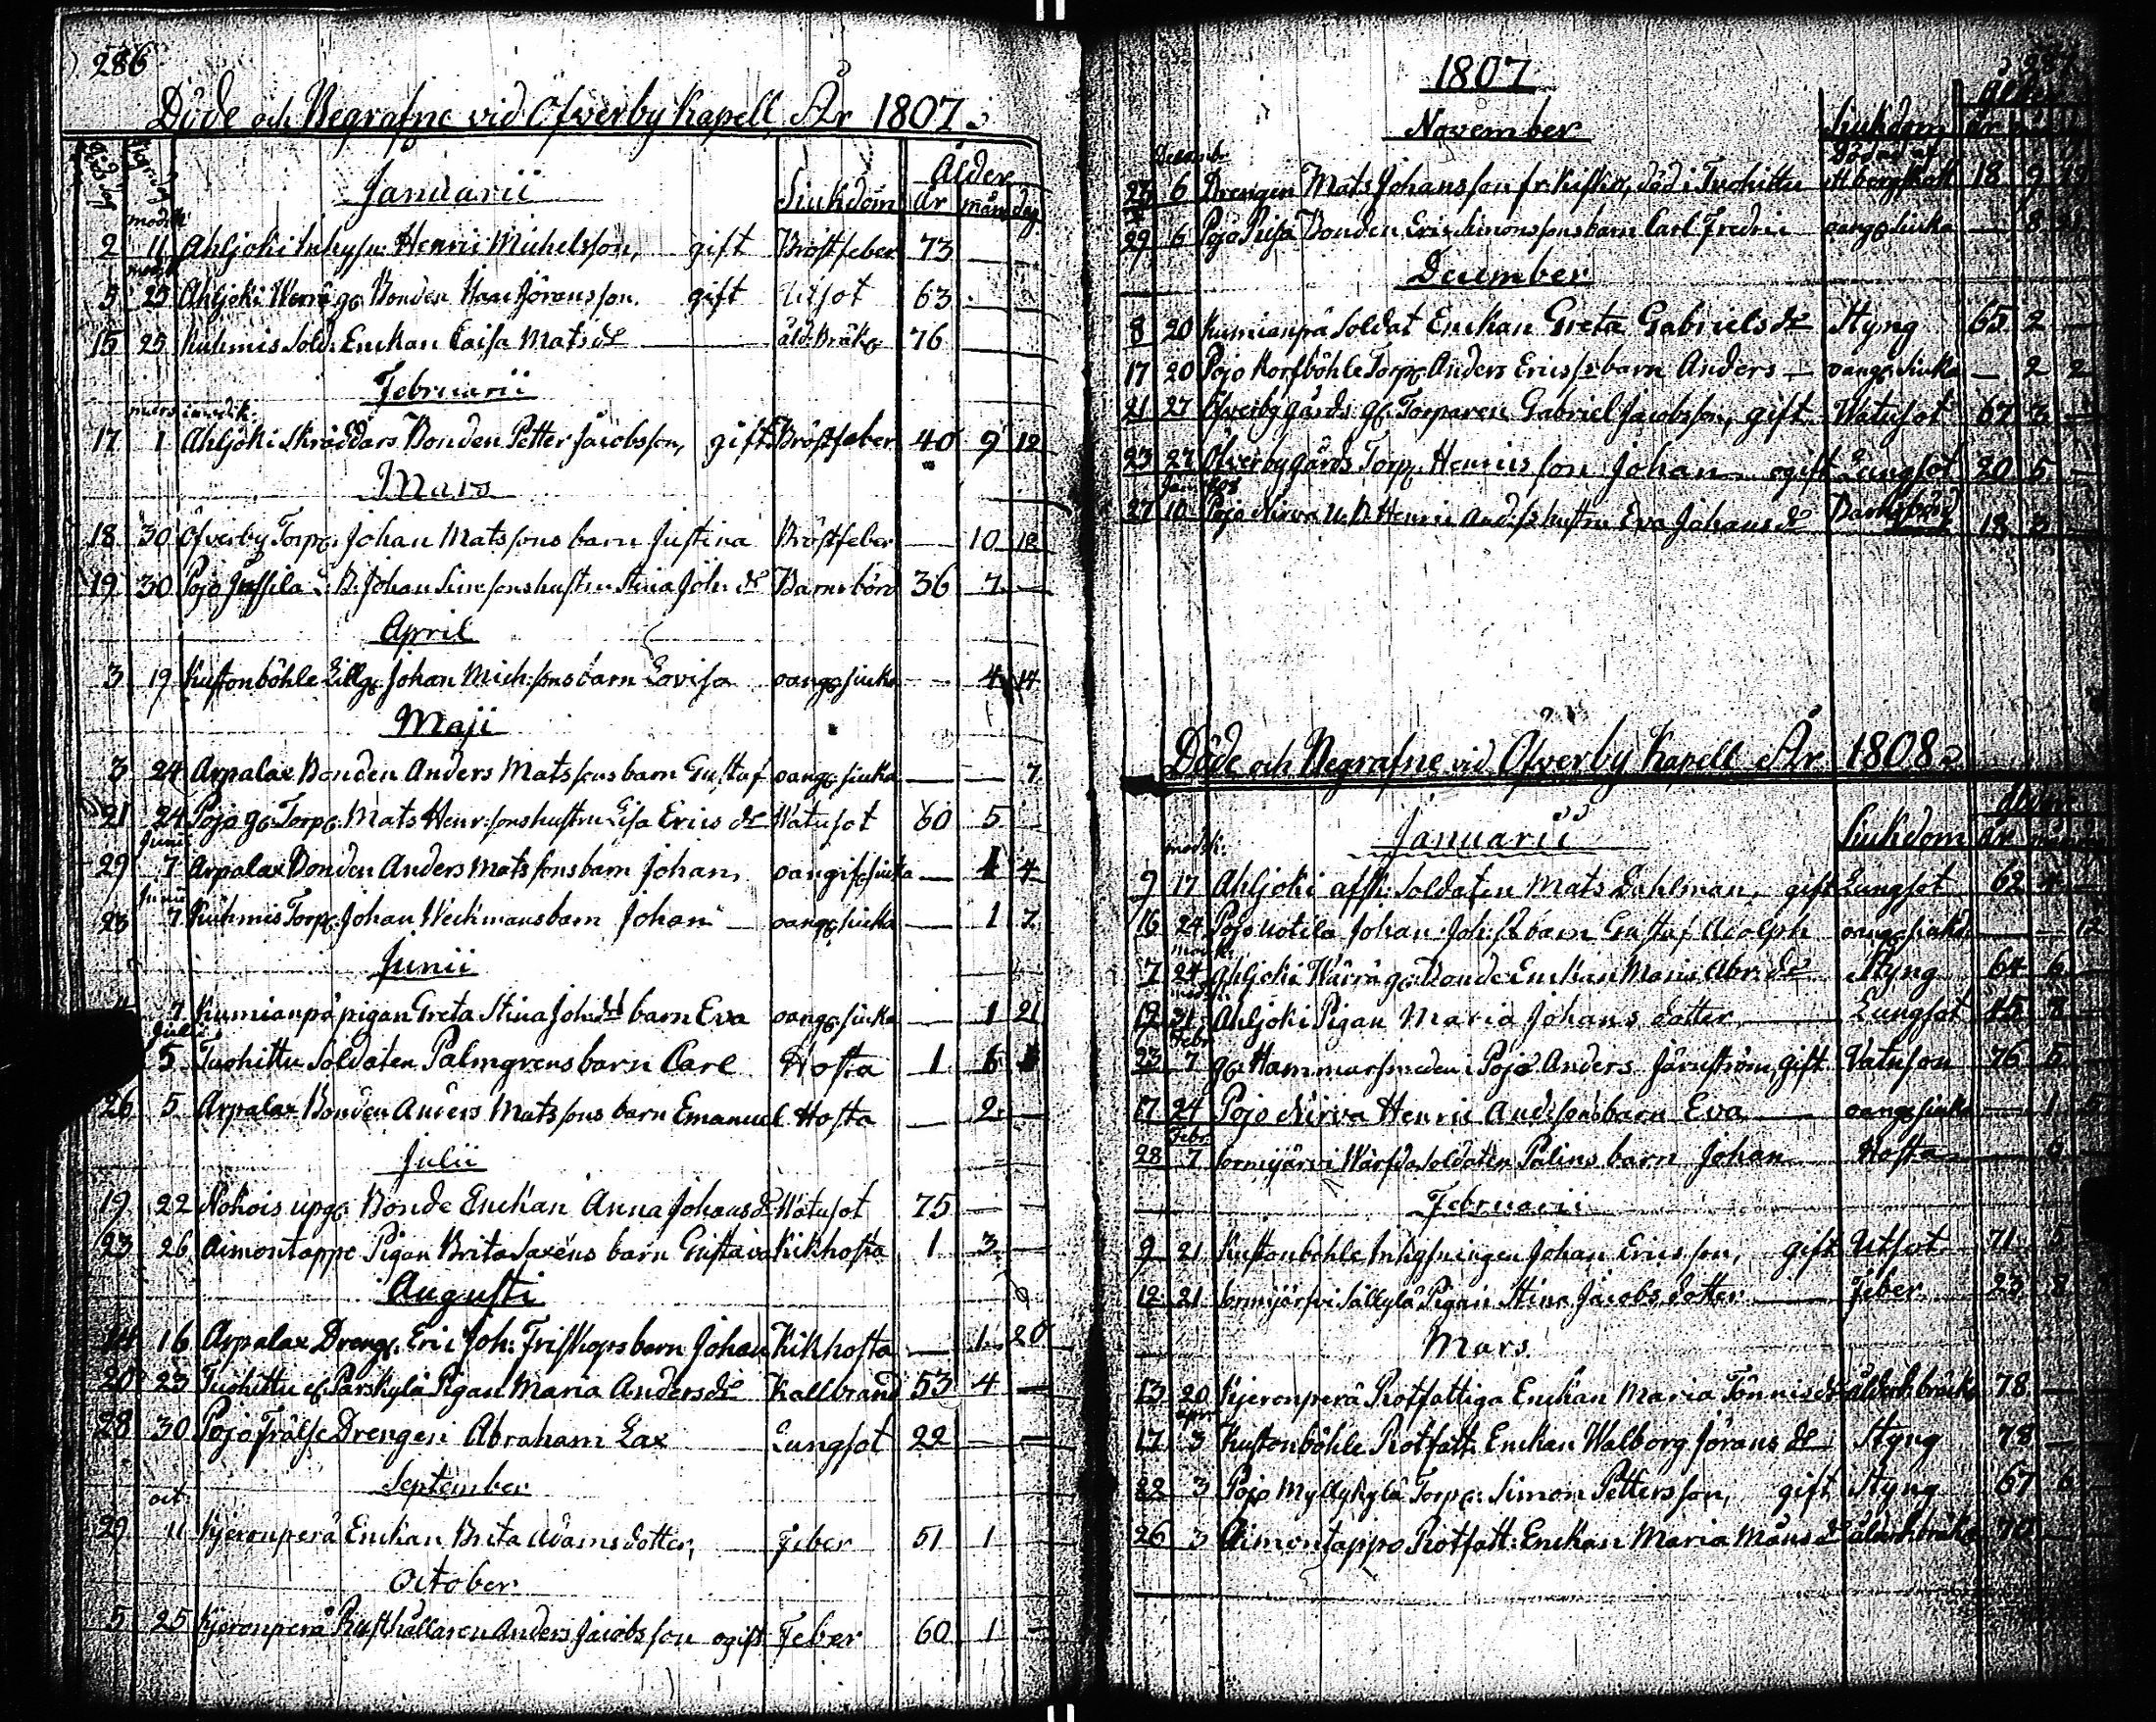 286
Döde och Begrafne vid Öfverby Kapell År 1807.
Januarii
Siukdom
Ålder
år mån dag
2 11 Ahljoki Inhyss: Henric Michelsson, gift Bröstfeber 73
5 25 Ahljoki Werrä gd Bonden Jöransson. gift Utsot 63
15 25 Kuhmis Sold: Enckan Caisa Matsdr åld:bräkg 76
Februarii
17 1 Ahljoki Skräddars Bonden Petter Jacobsson, gift Bröstfeber 40 9 12
Mars
18 30 Öfverby Torp: Johan Matssons barn Justina Bröstfeber 10 12
19 30 Pojo Jussila Johan Simssons hustru Stina Joh: dr Barnsbörd 36 7
April
3 19 Kustonböhle Lillg: Johan Mich:sons barn Lovisa oang: siuka 4 14
Maji
3 24 Arpalax Bonden Anders Matssons barn Gustaf oang: siuka 7
21 24 Pojo gd Torp: Mats Henr:sons hustru Lisa Erics dr Watusot 60 5
Junii
29 7 Arpalax Bonden Anders Matssons barn Johan oangifs siuka 1 4
Junii
23 7 Kuhmis Torp: Johan Weckmans barn Johan oang: siuka 1 7
Junii
7 Kumianpä pigan Greta Stina Joh:dr barn Eva oang: siuka 1 21
Julii
5 Tuohittu Soldaten Palmgrens barn Carl Hosta 1 6
26 5 Arpalax Bonden Anders Matssons barn Emanuel Hosta 2
Julii
19 22 Nohois upg: Bonde Enckan Anna Johansdr Watusot 75
23 26 Aimontappo Pigan Brita Saxéns barn Gustava Kikhosta 1 3
Augusti
14 16 Arpalax Dreng: Eric Joh: Friskops barn Johan Kikhosta 1 20
20 23 Tuohittu Parskylä Pigan Maria Andersdr Kallbrand 53 4
28 30 Pojo Frälse Drengen Abraham Lax Lungsot 22
September
oct:
29 11 Kjeronperä Enckan Brita Adamsdotter, Feber 51 1
October
5 25 Kjeronperä Rusthållaren Anders Jacobsson ogift Feber 60 1
287
1807
November
Siukdom
Ålder
år
Decemb:
6 Drengen Mats Johansson fr: Kuskio, död i Tuohittu Dödad af 18 9
29 6 Pojo Prusa Bonden Eric Simonssons barn Carl Fredric oang: siuka 8
December
8 20 Kumianpä Soldat Enckan Greta Gabrielsdr Styng 65 2
17 20 Pojo Korsböhle Torp: Anders Ericss barn Anders oang: siuka 2 2
21 27 Öfverby gårds gd Torparen Gabriel Jacobsson, gift Watusot 67 3
23 27 Öfverby gårds Torp: Henrics son Johan ogift Lungsot 20 5
27 10 Pojo Nirva Henric And:ss hustru Eva Johansdr Barnsbörd 18
Döde och Begrafne vid Öfverby Kapell År 1808.
Januarii
Siukdom
Ålder
år
9 17 Ahljoki afsk: Soldaten Mats Dahlman, gift Lungsot 62
16 24 Pojo Uotila Johan Joh:ss barn Gustaf Adolph oang: siuka 12
7 24 Ahljoki Wärrä gd Bonde Enckan Maria Abr: dr Styng 64 6
12 31 Ahljoki Pigan Maria Johans dotter Lungsot 45 8
Febr:
23 7 gd Hammarsmeden i Pojo Anders Järnström, gift Vatusot 76 5
17 24 Pojo Nirva Henric And:sons barn Eva oang: siuka 1
Febr:
28 7 Sormijärvi Wärfda Soldaten Palins barn Johan Hosta 6
Februarii
9 21 Kustonböhle Inhysningen Johan Ericsson, gift Utsot 71 5
12 21 Sormijärfvi Sällylä Pigan Stina Jacobs dotter Feber 23 8
Mars
13 20 Kjeronperä Rotfattiga Enckan Maria Tönnisdr ålderd:bräkg 78
Apr:
17 3 Kustonböhle Rotfatt: Enckan Walborg Jörans dr Styng 78
22 3 Pojo Myllykylä Torp: Simon Pettersson, gift Styng 67 6
26 3 Aimontappo Rotfatt: Enckan Maria Månsdr ålderd:bräkg 70